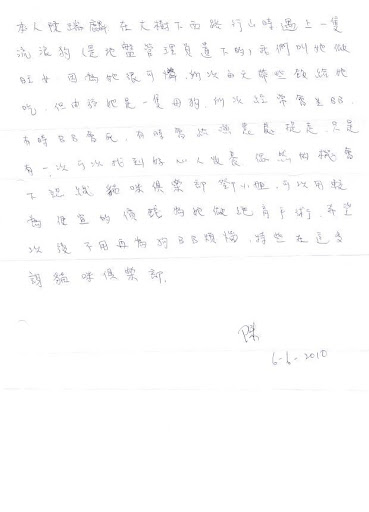 本人徒路麟,在大樹下西路行山時遇上一隻
流浪狗(是地盤管理員遺下的),我們叫她做
旺來,因為她很可憐,所以每天帶些飯給她
吃,但由於她是一隻母狗,所以經常會生BB.
有時BB會死,有時會被漁農處捉走,只是
有一次可以找到好心人收養.偶然的機會
下認識貓咪俱樂部劉小姐,可以用較
為便宜的價錢為她做絕育手術,希望
以後不用再為狗BB煩惱,特此在這多
謝貓咪俱樂部.
陳
6-6-2010